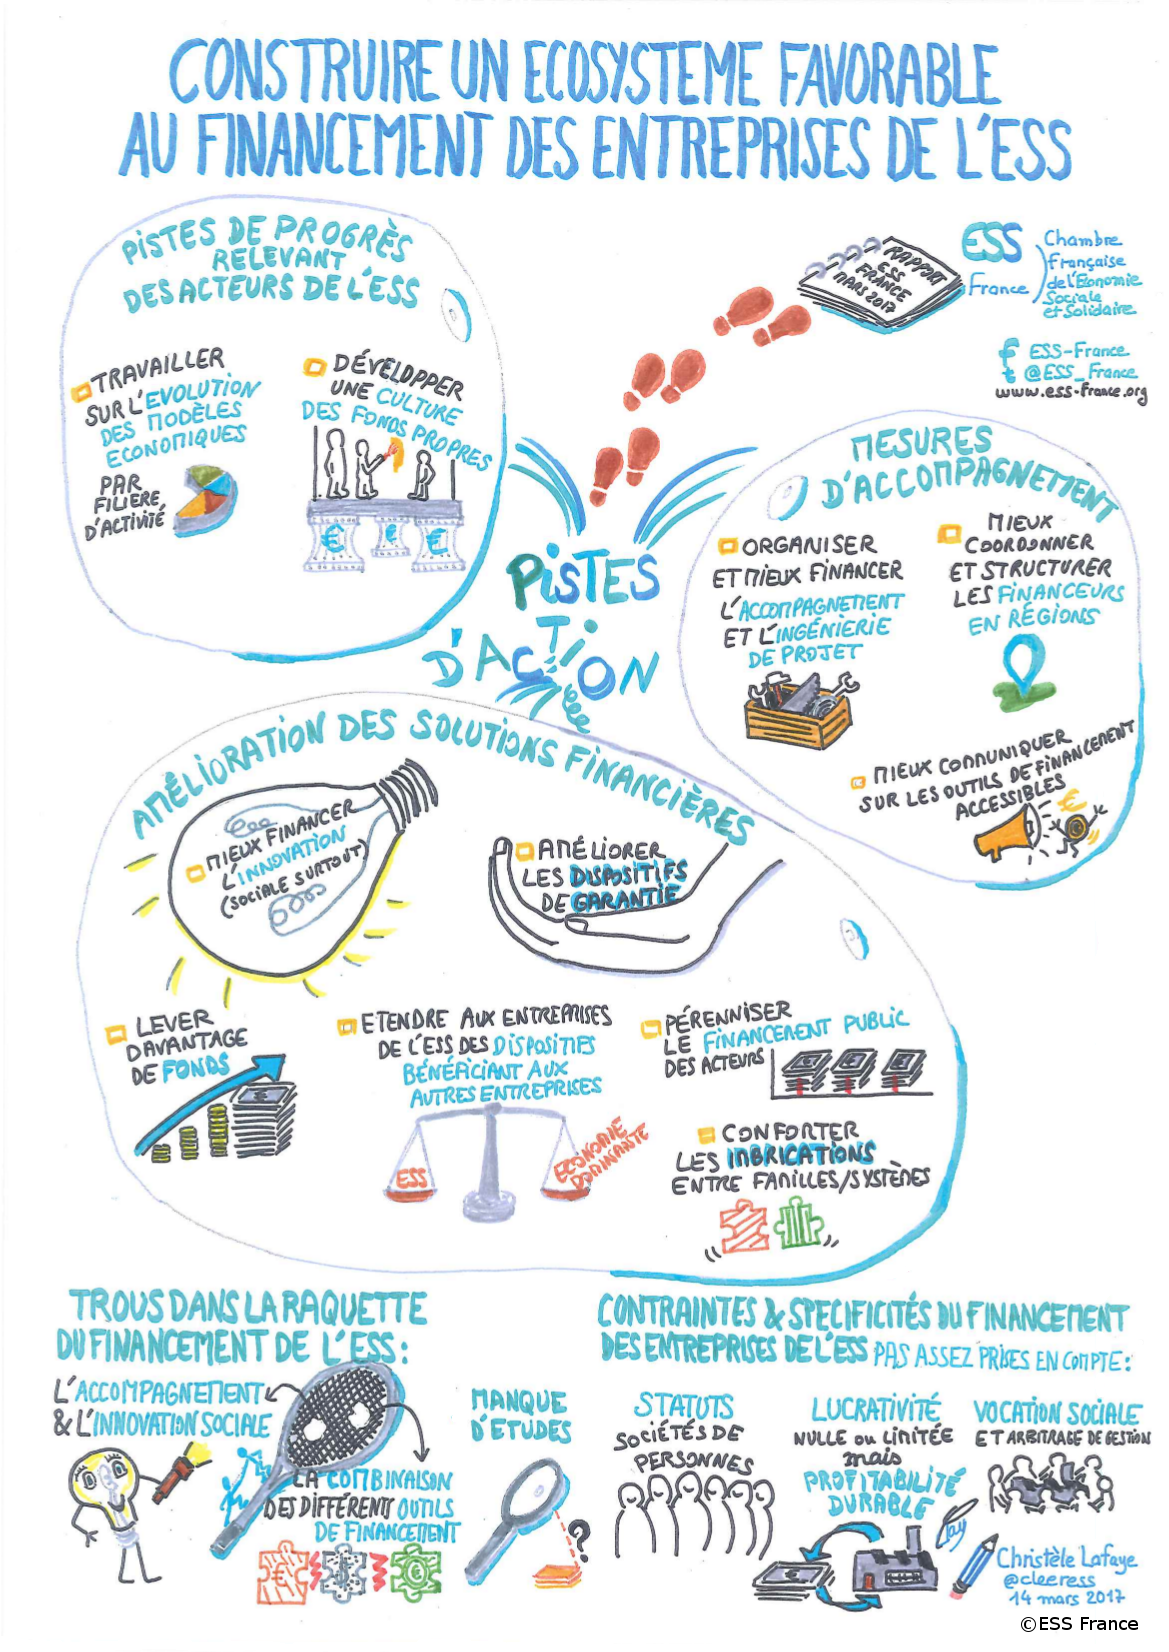 CONSTRUIRE UN ECOSYSTEME FAVORABLE
AU FINANCEMENT DES ENTREPRISES DE L'ESS
PISTES DE PROGRÈS
RELEVANT
DES ACTEURS DE L'ESS
TRAVAILLER
SUR L'EVOLUTION
DES MODÈLES
ECONOMIQUES
PAR
FILIERE
D'ACTIVITÉ
DÉVELOPPER
UNE CULTURE
DES FONDS PROPRES
€ € €
RAPPORT
ESS
FRANCE
MARS 2017
ESS
France
Chambre
Française
de l'Economie
Sociale
et Solidaire
f ESS-France
t @ESS_France
www.ess-france.org
PISTES
D'ACTION
MESURES
D'ACCOMPAGNEMENT
ORGANISER
ET MIEUX FINANCER
L'ACCOMPAGNEMENT
ET L'INGÉNIERIE
DE PROJET
MIEUX
COORDONNER
ET STRUCTURER
LES FINANCEURS
EN RÉGIONS
MIEUX COMMUNIQUER
SUR LES OUTILS DE FINANCEMENT
ACCESSIBLES
€
AMÉLIORATION DES SOLUTIONS FINANCIÈRES
MIEUX FINANCER
L'INNOVATION
(SOCIALE SURTOUT)
AMÉLIORER
LES DISPOSITIFS
DE GARANTIE
LEVER
DAVANTAGE
DE FONDS
ETENDRE AUX ENTREPRISES
DE L'ESS DES DISPOSITIFS
BÉNÉFICIANT AUX
AUTRES ENTREPRISES
ESS
ECONOMIE
DOMINANTE
PÉRENNISER
LE FINANCEMENT PUBLIC
DES ACTEURS
CONFORTER
LES IMBRICATIONS
ENTRE FAMILLES/SYSTÈMES
TROUS DANS LA RAQUETTE
DU FINANCEMENT DE L'ESS:
L'ACCOMPAGNEMENT
& L'INNOVATION SOCIALE
LA COMBINAISON
DES DIFFÉRENTS OUTILS
DE FINANCEMENT
MANQUE
D'ETUDES
?
CONTRAINTES & SPECIFICITÉS DU FINANCEMENT
DES ENTREPRISES DE L'ESS PAS ASSEZ PRISES EN COMPTE:
STATUTS
SOCIÉTÉS DE
PERSONNES
LUCRATIVITÉ
NULLE ou LIMITÉE
mais
PROFITABILITÉ
DURABLE
VOCATION SOCIALE
ET ARBITRAGE DE GESTION
Christèle Lafaye
@cleeress
14 mars 2017
©ESS France